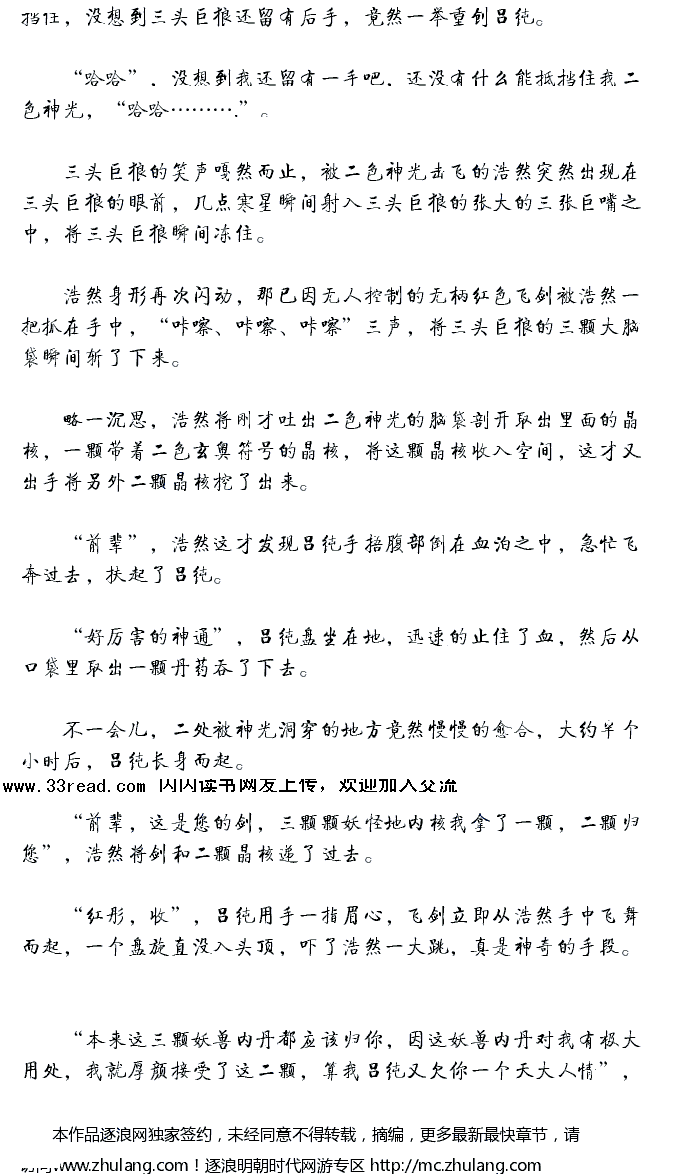 挡住，没想到三头巨狼还留有后手，竟然一举重创吕纯。
“哈哈”，没想到我还留有一手吧，还没有什么能抵挡住我二
色神光，“哈哈……….”。
三头巨狼的笑声嘎然而止，被二色神光击飞的浩然突然出现在
三头巨狼的眼前，几点寒星瞬间射入三头巨狼的张大的三张巨嘴之
中，将三头巨狼瞬间冻住。
浩然身形再次闪动，那已因无人控制的无柄红色飞剑被浩然一
把抓在手中，“咔嚓、咔嚓、咔嚓”三声，将三头巨狼的三颗大脑
袋瞬间斩了下来。
略一沉思，浩然将刚才吐出二色神光的脑袋剖开取出里面的晶
核，一颗带着二色玄奥符号的晶核，将这颗晶核收入空间，这才又
出手将另外二颗晶核挖了出来。
“前辈”，浩然这才发现吕纯手捂腹部倒在血泊之中，急忙飞
奔过去，扶起了吕纯。
“好厉害的神通”，吕纯盘坐在地，迅速的止住了血，然后从
口袋里取出一颗丹药吞了下去。
不一会儿，二处被神光洞穿的地方竟然慢慢的愈合，大约半个
小时后，吕纯长身而起。
www.33read.com 闪闪读书网友上传，欢迎加入交流
“前辈，这是您的剑，三颗颗妖怪地内核我拿了一颗，二颗归
您”，浩然将剑和二颗晶核递了过去。
“红彤，收”，吕纯用手一指眉心，飞剑立即从浩然手中飞舞
而起，一个盘旋直没入头顶，吓了浩然一大跳，真是神奇的手段。
“本来这三颗妖兽内丹都应该归你，因这妖兽内丹对我有极大
用处，我就厚颜接受了这二颗，算我吕纯又欠你一个天大人情”，
本作品逐浪网独家签约，未经同意不得转载，摘编，更多最新最快章节，请
访问www.zhulang.com！逐浪明朝时代网游专区 http://mc.zhulang.com